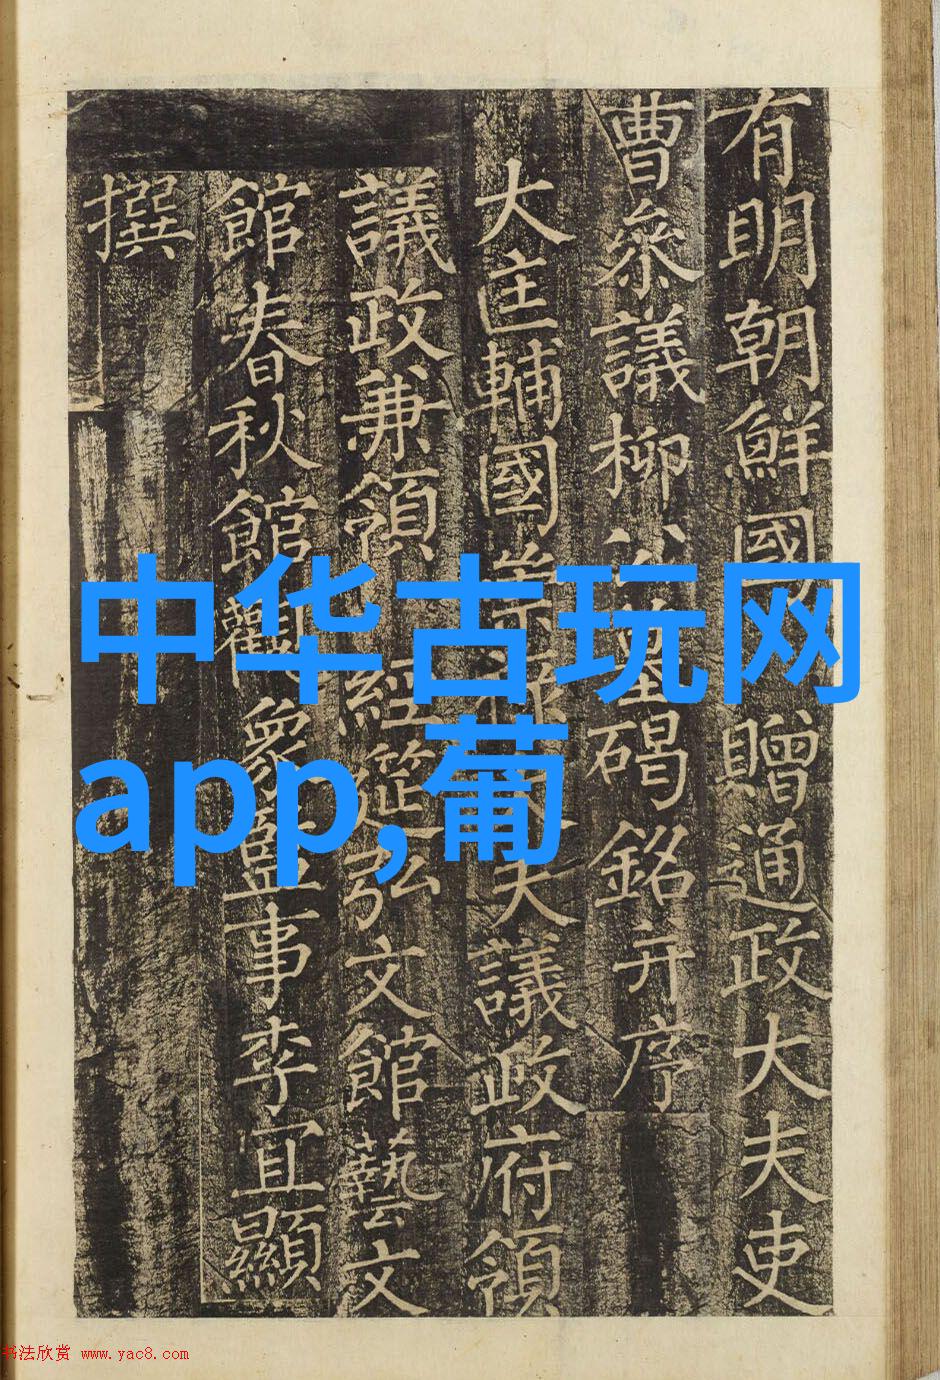 有明朝鮮國贈通政大夫吏
曹參議柳公墓碣銘并序
大匡輔國崇祿大夫議政府領
議政兼領經筵弘文館藝文
館春秋館觀象監事李宜顯
撰
中华古玩网
app,葡
书法欣赏 www.yac8.com